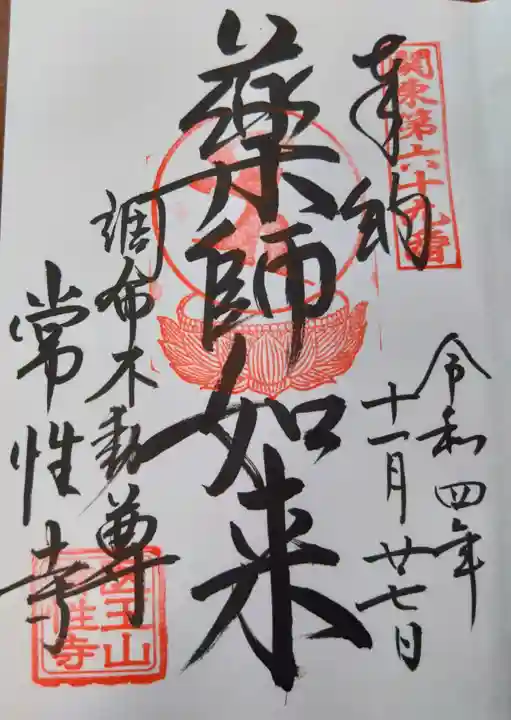 関東第六十九番
奉納
令和四年
十一月廿七日
薬師如来
調布不動尊
常性寺
医王山
常性寺